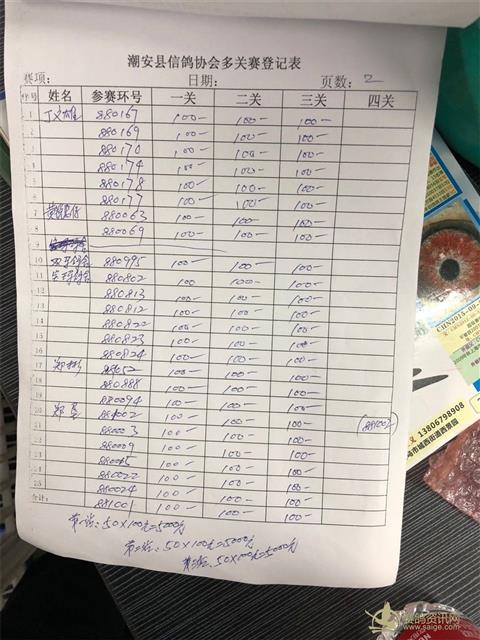 潮安县信鸽协会多关赛登记表
赛项: 日期: 页数: 2
序号 姓名 参赛环号 一关 二关 三关 四关
1 丁文雄 880167 100- 100- 100-
2 880169 100- 100- 100-
3 880170 100- 100- 100-
4 880174 100- 100- 100-
5 880178 100- 100- 100-
6 880177 100- 100- 100-
7 880063 100- 100- 100-
8 880069 100- 100- 100-
9
10 880995 100- 100- 100-
11 880802 100- 100- 100-
12 880813 100- 100- 100-
13 880812 100- 100- 100-
14 880822 100- 100- 100-
15 880823 100- 100- 100-
16 880824 100- 100- 100-
17 郑彬 100- 100- 100-
18 880888 100- 100- 100-
19 880094 100- 100- 100-
20 郑 100- 100- 100-
21 880003 100- 100- 100-
22 880009 100- 100- 100-
23 100- 100- 100-
24 880022 100- 100- 100-
25 880024 100- 100- 100-
合计: 881001 100- 100- 100-
第一关: 50×100元=5000元
第二关: 50×100元=5000元
第三关: 50×100元=5000元
CHN2015-09-
13806798908
市城西街道西景园
赛鸽资讯网
www.saige.com